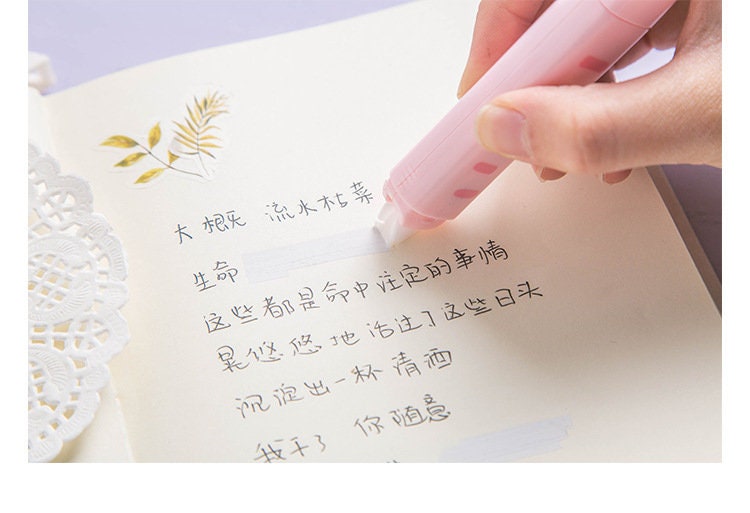 大概 流水枯菜
生命
这些都是命中注定的事情
晃悠悠地活注了这些日头
沉淀出一杯清酒
我干了 你随意